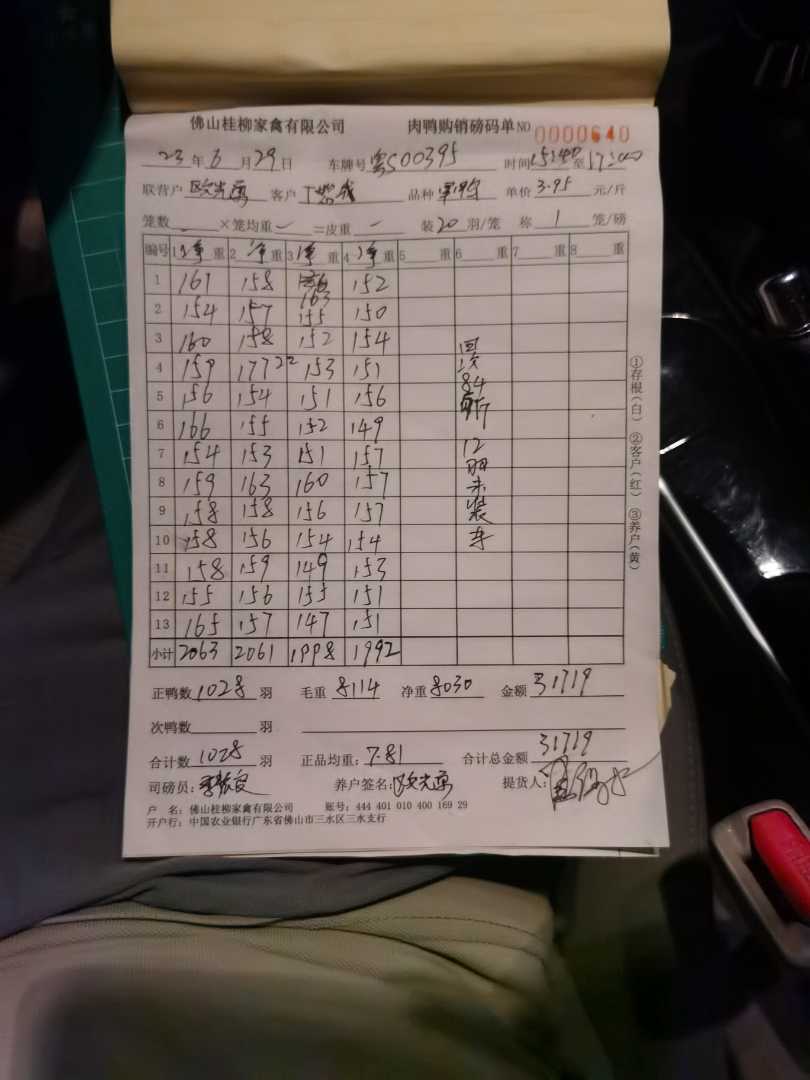 佛山桂柳家禽有限公司 肉鸭购销磅码单 NO 0000640
23年6月29日 车牌号 粤S00395 时间15:40至17:00
联营户 欧光勇 客户 品种 单价 3.95 元/斤
笼数 ×笼均重 =皮重 装20羽/笼 称 1 笼/磅
编号 1 净重 2 净重 3 净重 4 净重 5 重 6 重 7 重 8 重
1 161 158 163 152
2 154 157 155 150
3 160 158 152 154
4 159 177 22 153 151
5 156 154 151 156
6 166 155 152 149
7 154 153 151 157
8 159 163 160 157
9 158 158 156 157
10 158 156 154 154
11 158 159 149 153
12 155 156 155 151
13 165 157 147 151
小计 2063 2061 1998 1992
84
12羽未装车
①存根(白) ②客户(红) ③养户(黄)
正鸭数 1028 羽 毛重 8114 净重 8030 金额 31719
次鸭数 羽
合计数 1028 羽 正品均重: 7.81 合计总金额 31719
司磅员: 养户签名: 欧光勇 提货人:
户 名: 佛山桂柳家禽有限公司 账号: 444 401 010 400 169 29
开户行: 中国农业银行广东省佛山市三水区三水支行